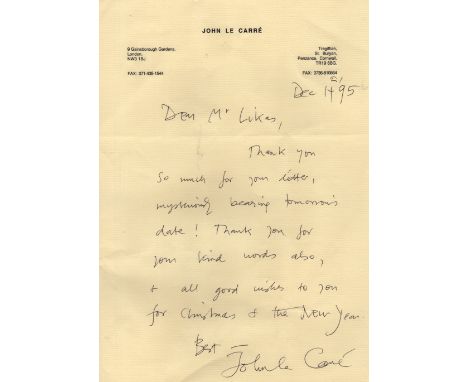 JOHN LE CARRÉ
9 Gainsborough Gardens,
London,
NW3 1BJ
FAX: 071-435-1541
Tregiffian,
St. Buryan,
Penzance, Cornwall,
TR19 6BG.
FAX: 0736-810864
Dec 1st 95
Dear Mr Likas,
Thank you
so much for your letter,
mysteriously bearing tomorrow's
date! Thank you for
your kind words also,
+ all good wishes to you
for Christmas & the New Year.
Best –
John le Carré